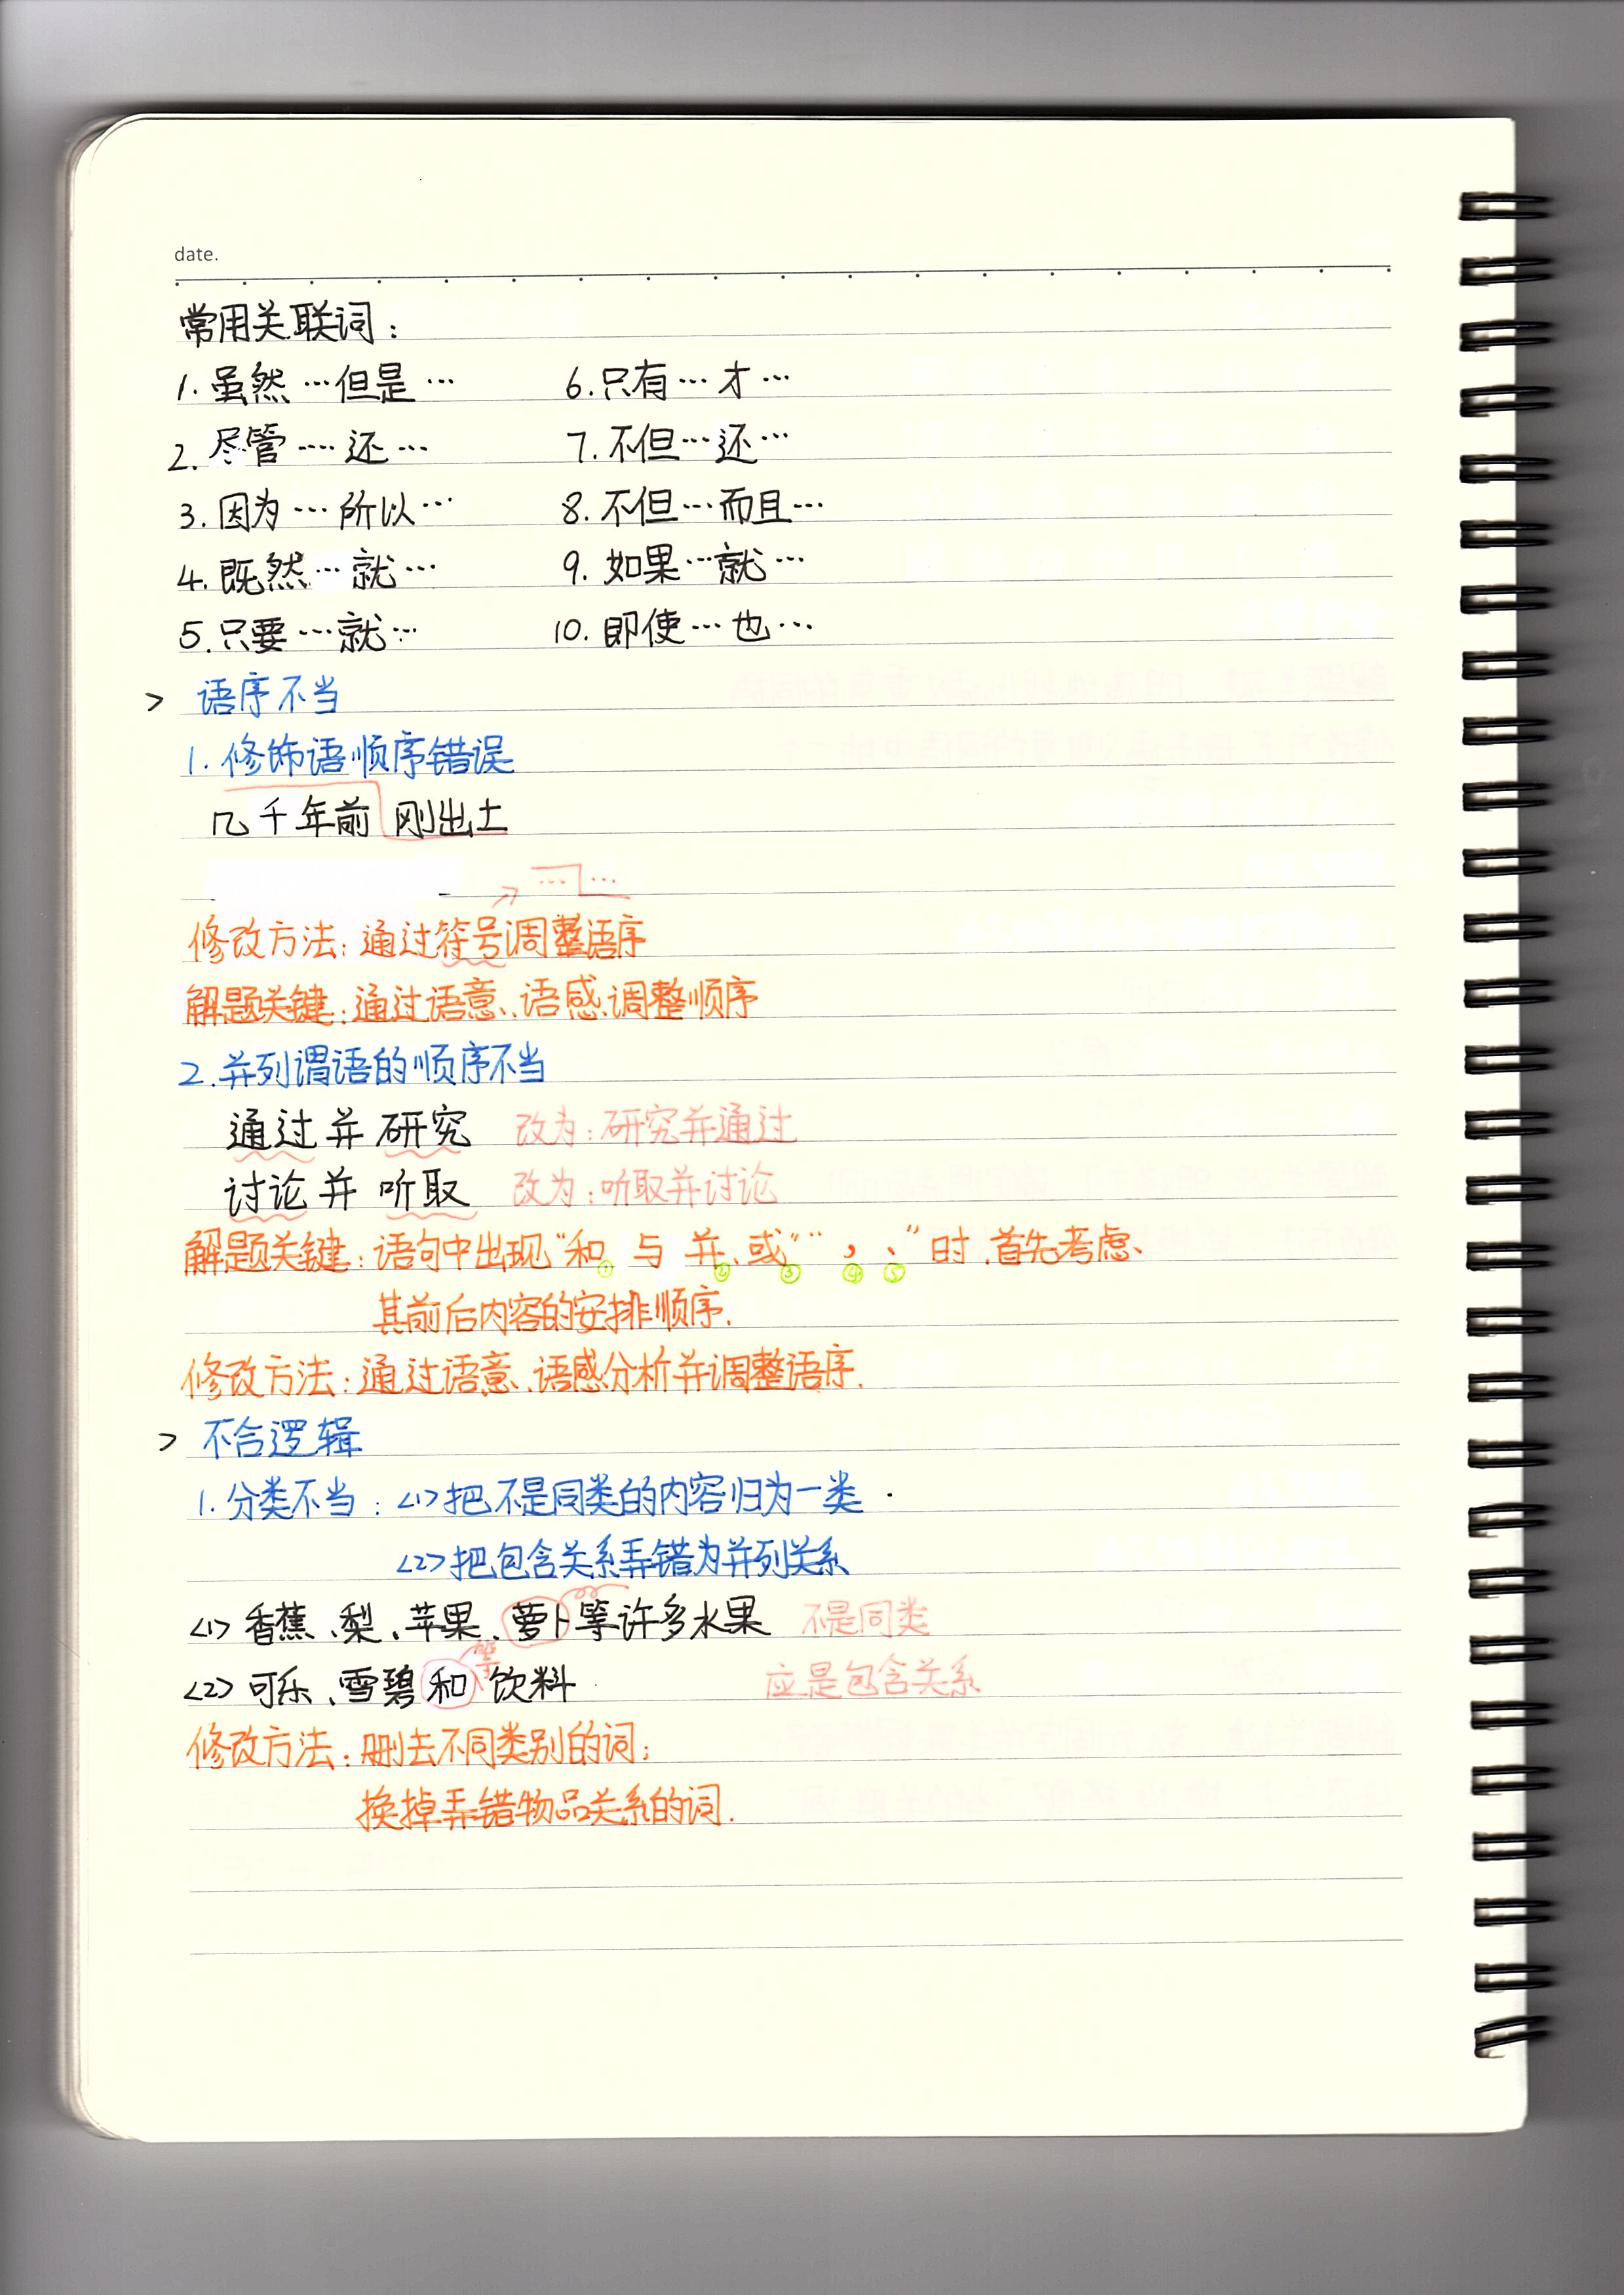 date.
常用关联词：
1. 虽然…但是… 6. 只有…才…
2. 尽管……还… 7. 不但…还…
3. 因为…所以… 8. 不但…而且…
4. 既然…就… 9. 如果…就…
5. 只要…就… 10. 即使…也…
> 语序不当
1. 修饰语顺序错误
几千年前 刚出土
… …
修改方法：通过符号调整语序
解题关键：通过语意、语感、调整顺序
2. 并列谓语的顺序不当
通过并研究 改为：研究并通过
讨论并听取 改为：听取并讨论
解题关键：语句中出现“和① 与 并②、或③“ “ ，④ 、⑤”时.首先考虑、
其前后内容的安排顺序.
修改方法：通过语意、语感分析并调整语序.
> 不合逻辑
1. 分类不当：<1>把不是同类的内容归为一类
<2>把包含关系弄错为并列关系
<1> 香蕉、梨、苹果、萝卜等许多水果 不是同类
等
<2> 可乐、雪碧和饮料 应是包含关系
修改方法：删去不同类别的词；
换掉弄错物品关系的词.